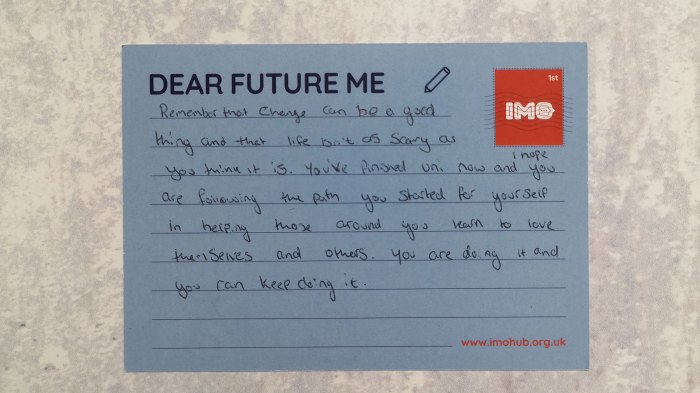 DEAR FUTURE ME
1st
IMO
Remember that change can be a good
thing and that life isn't as scary as
i hope
you think it is. You've finished uni now and you
are following the path you started for yourself
in helping those around you learn to love
themselves and others. You are doing it and
you can keep doing it.
www.imohub.org.uk